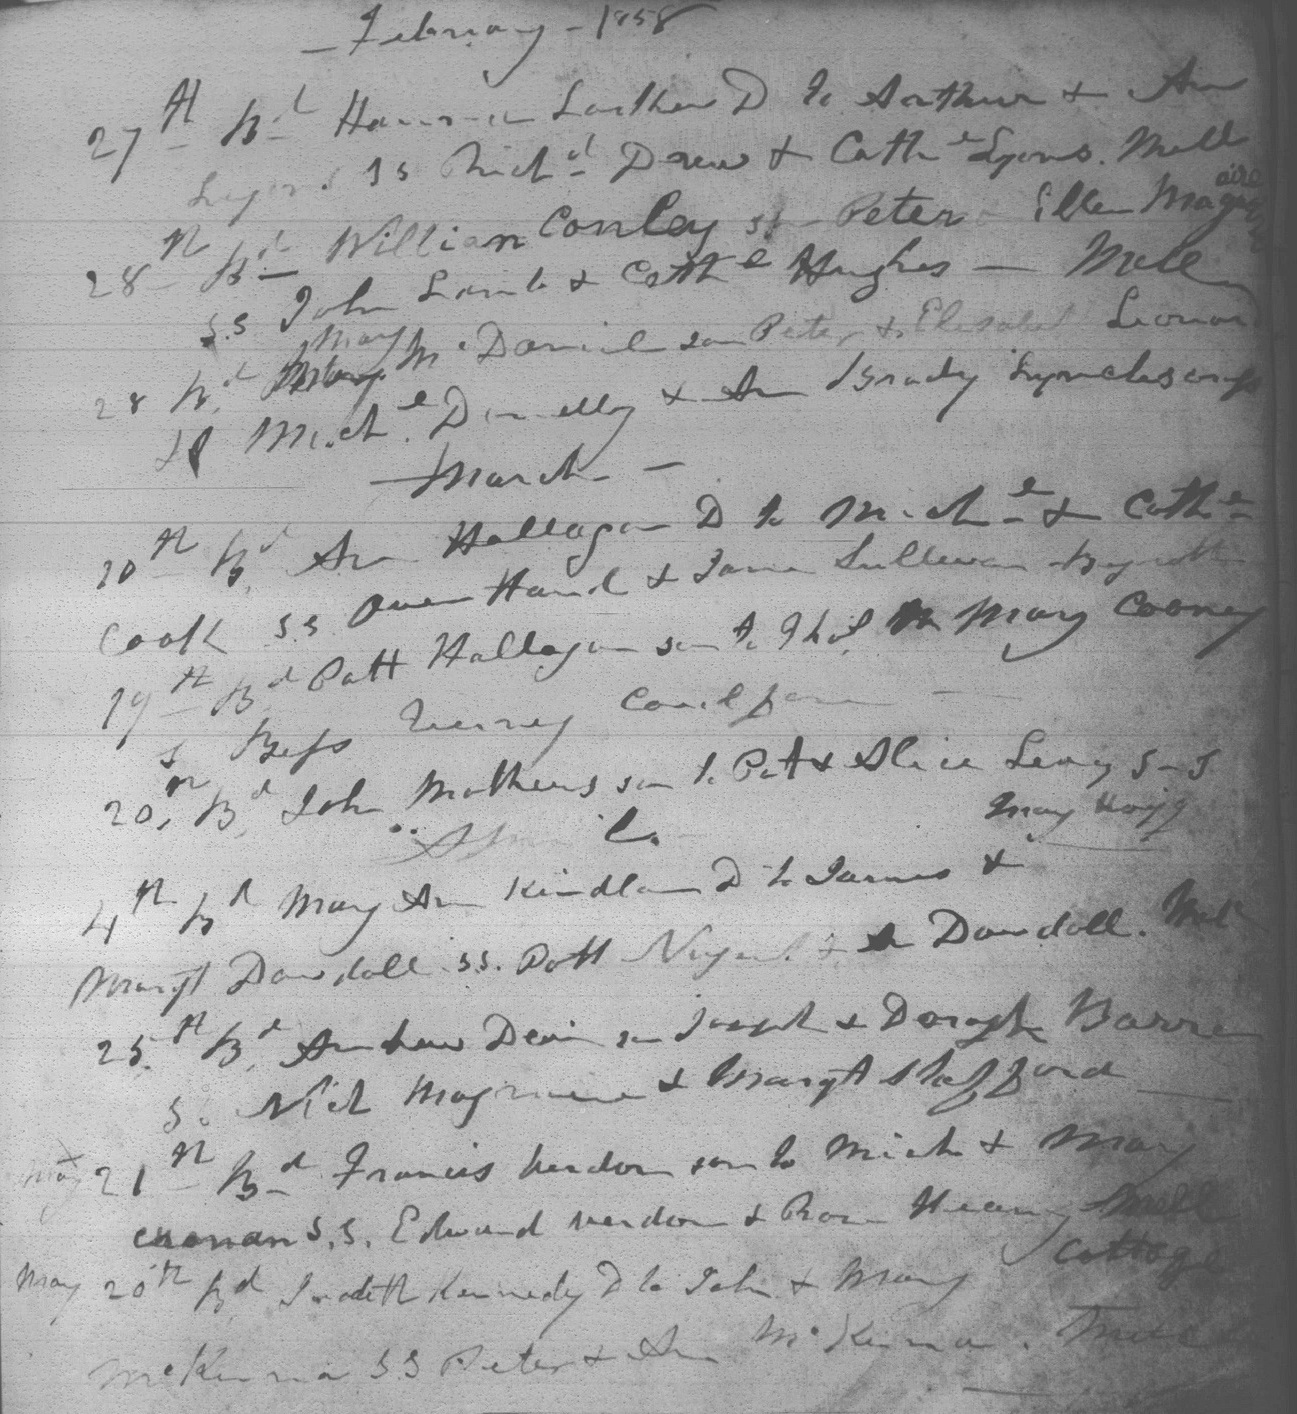 - February - 1858
27th Bd Hanna D to Arthur & Ann
Lyons ss Richd Drew & Cathe Lyons. Mell
28th Bd William Conley sn Peter Ellen Maguire
S.S John & Cathe Hughes - Mell
28 Bd Mary McDaniel son Peter & Elizabeth Leonard
SS Michl Donnelly & Ann Brady Lyonclescross
- March -
10th Bd Ann Hallagan D to Michl & Cathe
Cook S.S. Owen Hand & Jane Sullivan
19th Bd Patt Hallagan son to Thos Mary Cooney
S Bess
20th Bd John Mathews son to Pat & Alice Levy S-S
April Mary
4th Bd Mary Ann Kindlan D to James &
Margt Dowdall ss. Patt Nugent & Dowdall. Mell
25th Bd Andrew son Joseph &
S. Nich & Margt Stafford
May 21th Bd Francis Verdon son to Mich & Mary
Cronan S.S. Edward Verdon & Rose Heany Mell
Cottage
May 20th Bd Kennedy D to John & Mary
McKenna SS Peter & Ann McKenna. Mell